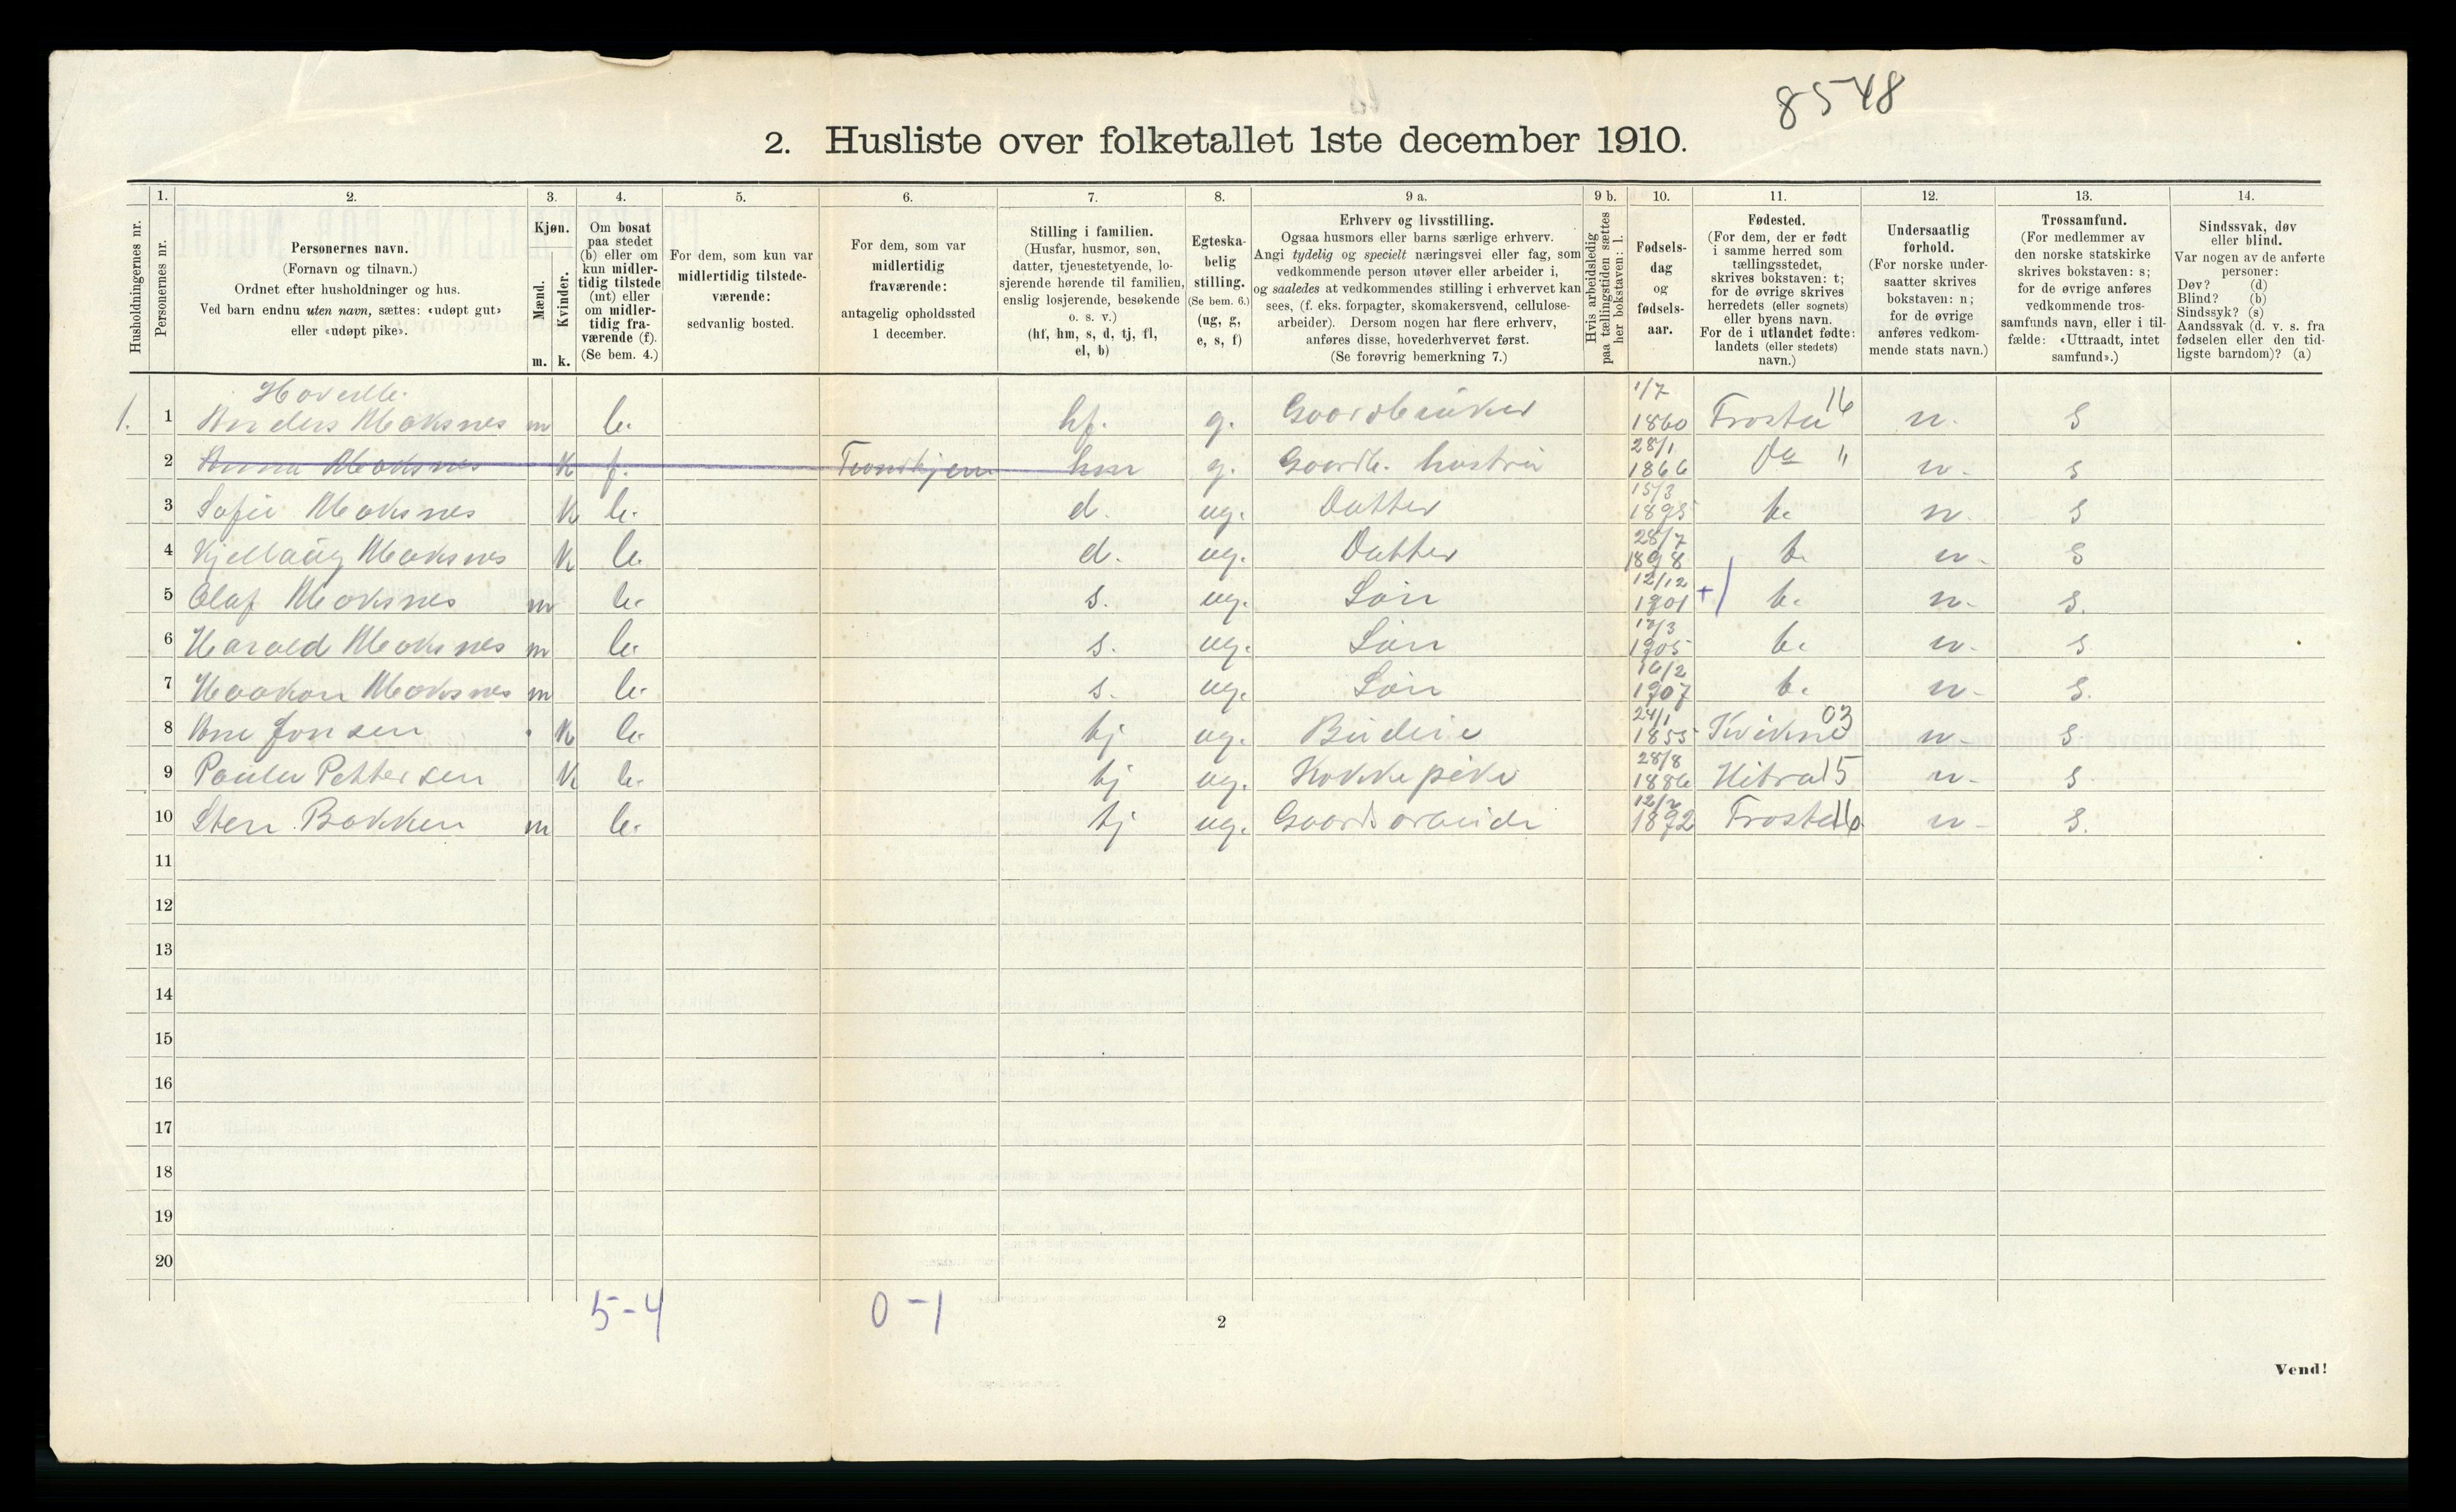 8548
2. Husliste over folketallet 1ste december 1910.
1. 2. 3. 4. 5. 6. 7. 8. 9 a. 9 b. 10. 11. 12. 13. 14.
Husholdningernes nr.
Personernes nr.
Personernes navn.
(Fornavn og tilnavn.)
Ordnet efter husholdninger og hus.
Ved barn endnu uten navn, sættes: «udøpt gut»
eller «udøpt pike».
Kjøn.
Mænd.
Kvinder.
m. k.
Om bosat
paa stedet
(b) eller om
kun midler-
tidig tilstede
(mt) eller
om midler-
tidig fra-
værende (f).
(Se bem. 4.)
For dem, som kun var
midlertidig tilstede-
værende:
sedvanlig bosted.
For dem, som var
midlertidig
fraværende:
antagelig opholdssted
1 december.
Stilling i familien.
(Husfar, husmor, søn,
datter, tjenestetyende, lo-
sjerende hørende til familien,
enslig losjerende, besøkende
o. s. v.)
(hf, hm, s, d, tj, fl,
el, b)
Egteska-
belig
stilling.
(Se bem. 6.)
(ug, g,
e, s, f)
Erhverv og livsstilling.
Ogsaa husmors eller barns særlige erhverv.
Angi tydelig og specielt næringsvei eller fag, som
vedkommende person utøver eller arbeider i,
og saaledes at vedkommendes stilling i erhvervet kan
sees, (f. eks. forpagter, skomakersvend, cellulose-
arbeider). Dersom nogen har flere erhverv,
anføres disse, hovederhvervet først.
(Se forøvrig bemerkning 7.)
Hvis arbeidsledig
paa tællingstiden sættes
her bokstaven: l.
Fødsels-
dag
og
fødsels-
aar.
Fødested.
(For dem, der er født
i samme herred som
tællingsstedet,
skrives bokstaven: t;
for de øvrige skrives
herredets (eller sognets)
eller byens navn.
For de i utlandet fødte:
landets (eller stedets)
navn.)
Undersaatlig
forhold.
(For norske under-
saatter skrives
bokstaven: n;
for de øvrige
anføres vedkom-
mende stats navn.)
Trossamfund.
(For medlemmer av
den norske statskirke
skrives bokstaven: s;
for de øvrige anføres
vedkommende tros-
samfunds navn, eller i til-
fælde: «Uttraadt, intet
samfund».)
Sindssvak, døv
eller blind.
Var nogen av de anførte
personer:
Døv? (d)
Blind? (b)
Sindssyk? (s)
Aandssvak (d. v. s. fra
fødselen eller den tid-
ligste barndom)? (a)
1/7
1. 1 Anders Moksnes m b. hf. g. Gaardbruker 1860 Frosta 16 n. s
28/1
2 Anna Moksnes K f. Trondhjem hm g. Gaardb. hustru 1866 Do " n. s
15/3
3 Sofie Moksnes K b. d. ug. Datter 1895 t. n. s
28/7
4 Kjellaug Moksnes K b. d. ug. Datter 1898 t. n. s
12/12
5 Olaf Moksnes m b. s. ug. Søn 1901 + t. n. s.
6 Harald Moksnes m b. s. ug. Søn 1905 t. n. s
16/2
7 Haakon Moksnes m b. s. ug. Søn 1907 t. n. s.
24/1
8 Ane Jonsen K b. tj ug. Budeie 1855 Kvikne 03 n. s
28/8
9 Paula Pettersen K b. tj ug. Kokkepike 1886 Hitra 15 n. s
12/2
10 Sten Bakken m b. tj ug. Gaardsarbeide 1892 Frosta 16 n. s.
11
12
13
14
15
16
17
18
19
20
5-4 0-1
2
Vend!